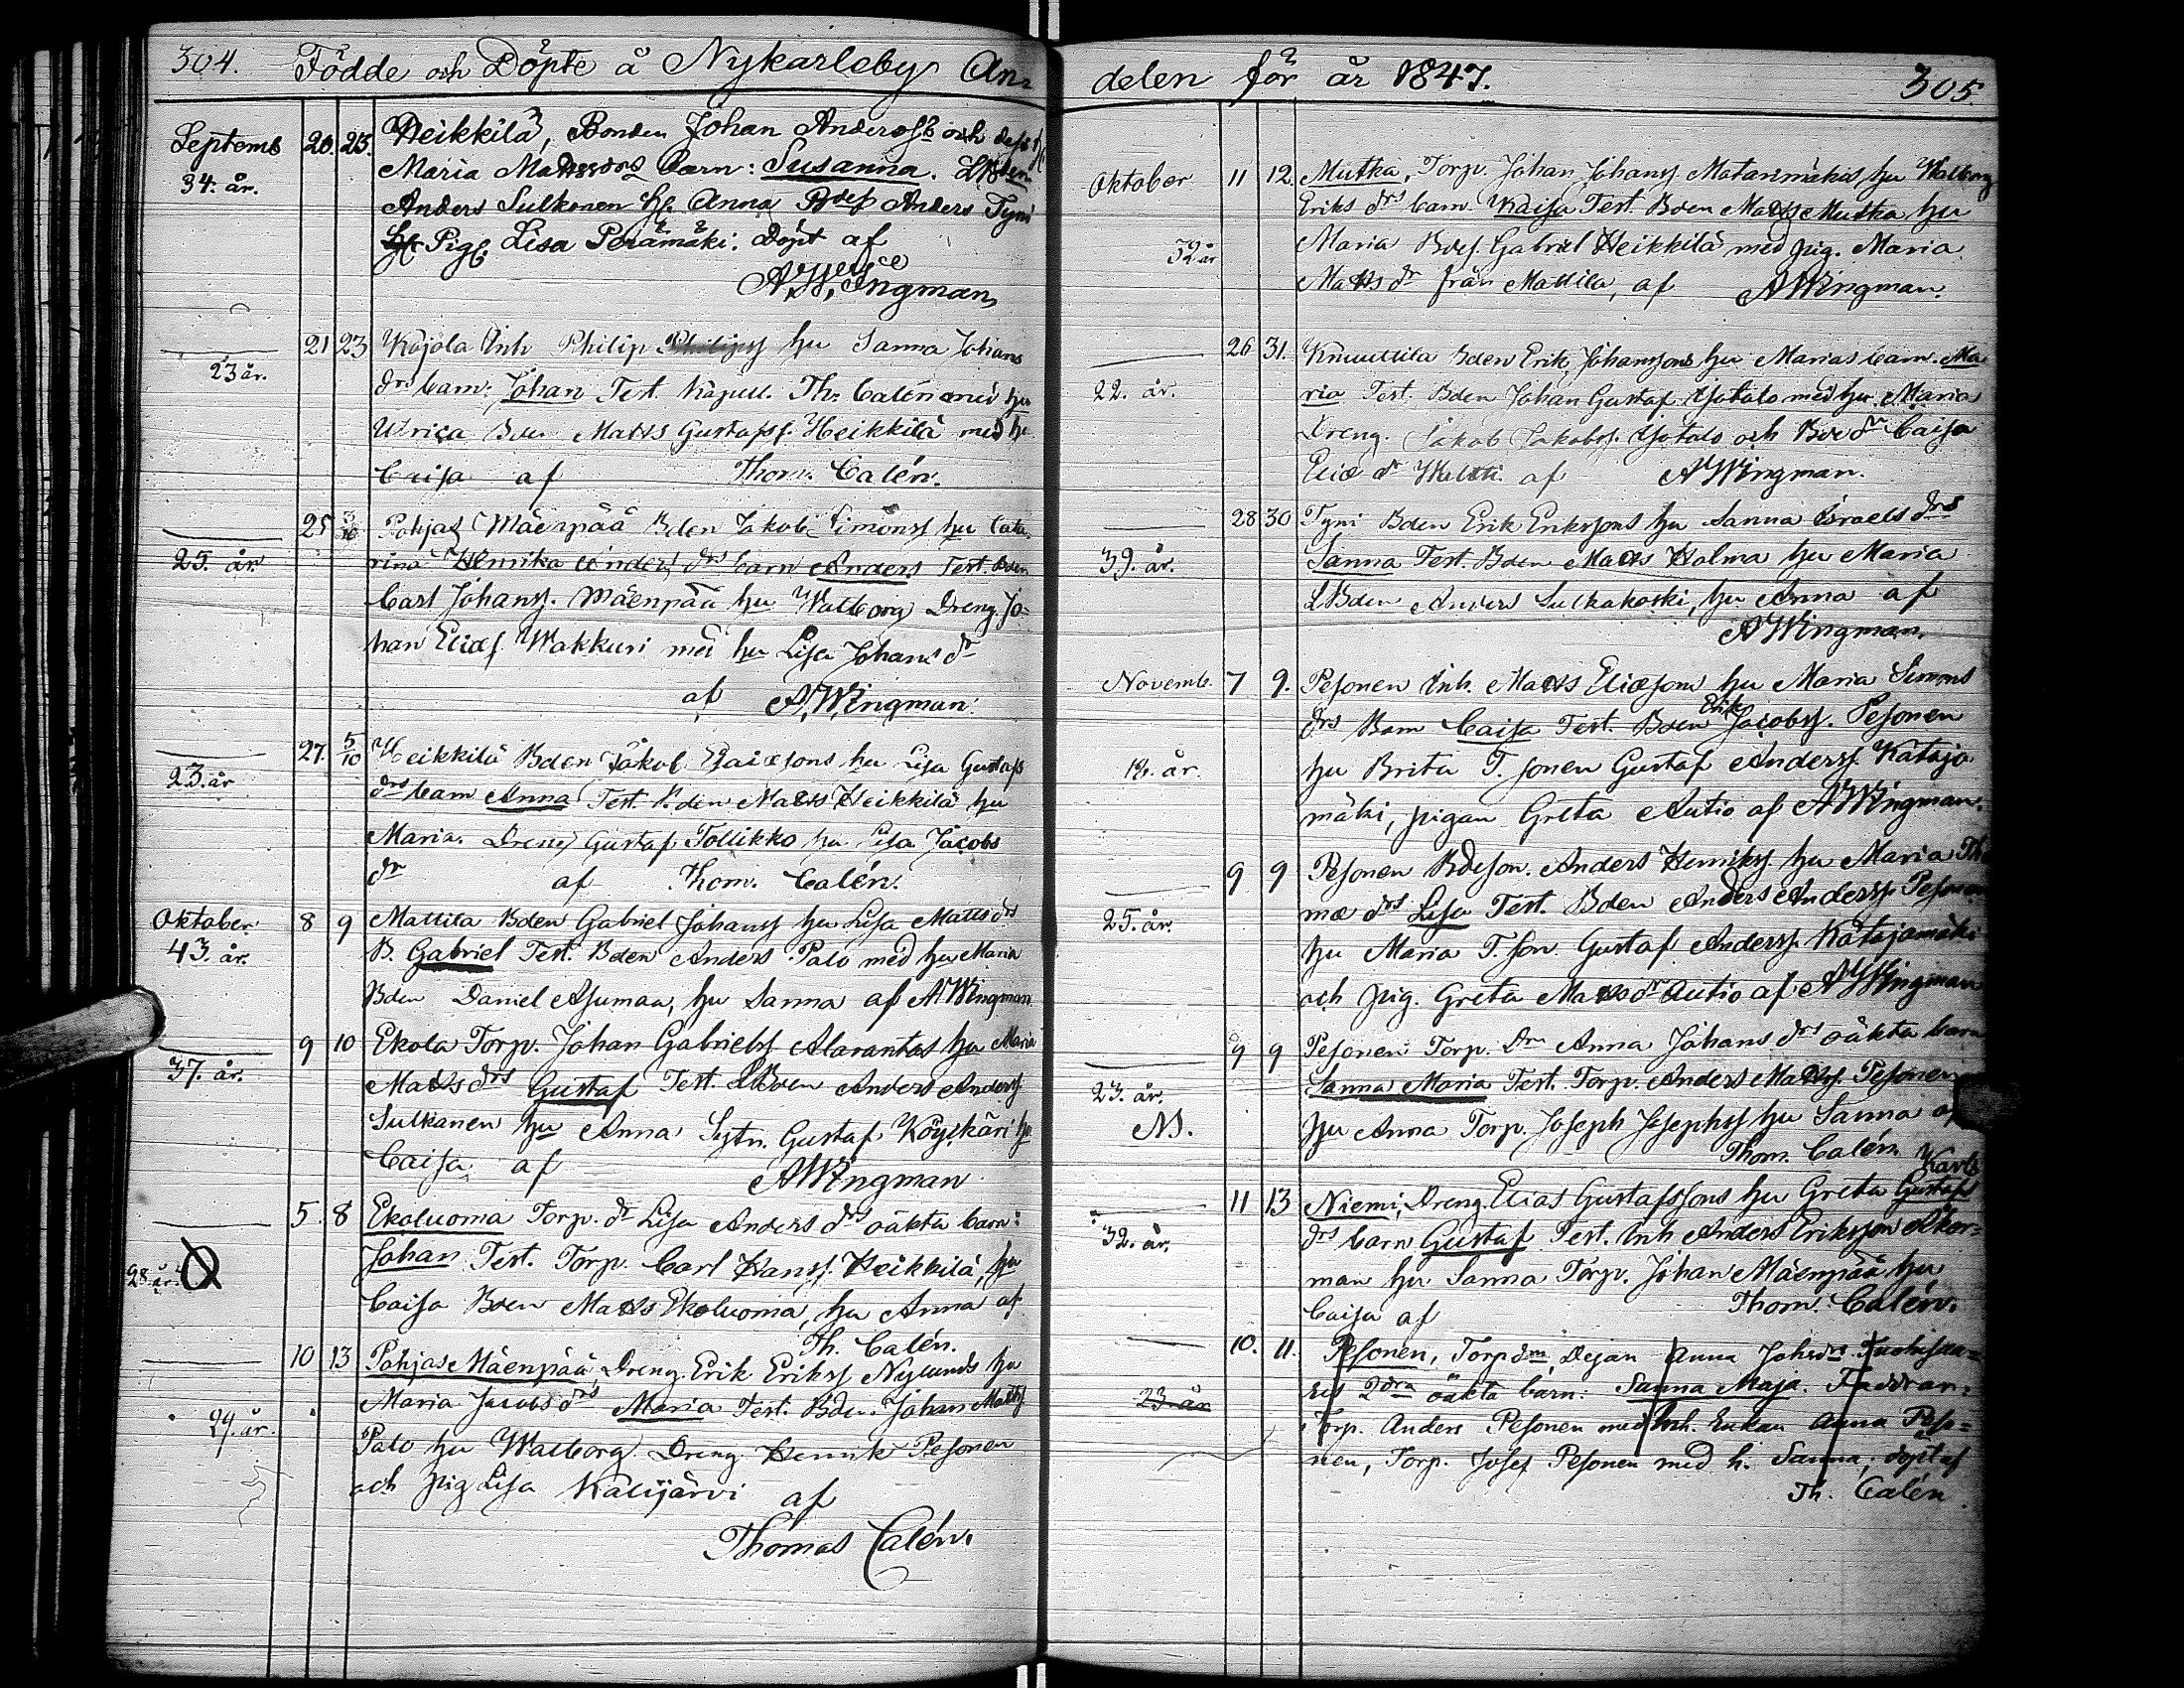 304. Födde och Döpte å Nykarleby An-
Septemb 20. 23. Heikkilä, Bonden Johan Anderss och dess h
34. år. Maria Mattsdrs barn: Susanna. LBden
Anders Sulkonen h Anna Bdess Anders Tyni
Pig. Lisa Perämäki. döpt af
A.W. Ingman
21 23 Kojola Inh Philip Philipss hu Sanna Johans
23 år. drs barn: Johan Test. Kapell. Th. Calén med hu
Ulrica Bden Matts Gustafss. Heikkilä med hu
Caisa af Thom. Calén.
25 3/10 Pohjas Mäenpää Bden Jakob Simonss hu Cata-
25. år. rina Henrika Anders drs barn Anders Test. Bden
Carl Johanss. Mäenpää hu Walborg Dreng. Jo-
han Eliæs. Wakkuri med hu Lisa Johans dr
af A.W. Ingman.
27. 5/10 Heikkilä Bden Jakob Esaiæsons hu Lisa Gustafs
23. år drs barn Anna Test. Bden Matts Heikkilä hu
Maria. Dreng Gustaf Tollikko hu Lisa Jacobs
dr af Thom. Calén.
Oktober 8 9 Mattila Bden Gabriel Johanss hu Lisa Matts drs
43. år. B. Gabriel Test. Bden Anders Palo med hu Maria
Bden Daniel Asumaa, hu Sanna af AWIngman
9 10 Ekola Torp. Johan Gabrielss Alarantas hu Maria
37. år. Matts drs Gustaf Test. LBden Anders Anderss
Sulkanen hu Anna Sytn. Gustaf Köyskäri hu
Caisa af AWIngman
5. 8 Ekoluoma Torp. dr Lisa Anders drs oäkta barn:
28 år. Johan Test. Torp. Carl Hanss. Heikkilä, hu
Caisa Bden Matts Ekoluoma, hu Anna af
Th. Calén.
10 13 Pohjas Mäenpää, Dreng. Erik Erikss Nylunds hu
Maria Jacobs drs Maria Test. Bden. Johan Mattss
24. år. Palo hu Walborg Dreng. Henrik Pesonen
och pig Lisa Kalijärvi af
Thomas Calén.
delen för år 1847. 305.
Oktober 11 12. Mutka, Torp. Johan Johanss Matarämäkis, hu Walborg
Eriks drs barn. Kaisa Test. Bden Matts Mutka hu
32 år Maria Bdes. Gabriel Heikkilä med pig. Maria
Matts dr från Mattila, af AWIngman.
26 31. Knuuttila Bden Erik Johanssons hu Marias barn. Ma-
22. år. ria Test. Bden Johan Gustaf Ylotalo med hu Maria
Dreng. Jakob Jakobss. Ylotalo och Bde dr Caisa
Eliæ dr Waltti. af AWIngman.
28 30 Tyni Bden Erik Erikssons hu Sanna Israels drs
39. år. Sanna Test. Bden Matts Holma hu Maria
LBden Anders Sulkakoski, hu Anna af
AWIngman.
Novemb. 7 9. Pesonen Inh. Matts Eliæsons hu Maria Simons
drs Barn Caisa Test. Bden Erik Jacobss. Pesonen
år. hu Brita T. sonen Gustaf Anderss. Kataja-
mäki, pigan Greta Autio af AWIngman.
9 9 Pesonen Bdeson. Anders Henrikss hu Maria Tho-
25. år. mæ drs Lisa Test. Bden Anders Anderss. Pesonen
hu Maria T. son. Gustaf Anderss. Katajamäki
och pig. Greta Matts dr Autio af AWIngman
9 9 Pesonen Torp. Drn Anna Johans drs oäkta barn
23. år. Sanna Maria Test. Torp. Anders Matss. Pesonen
hu Anna Torp. Joseph Josephss hu Sanna af
Thom. Calén.
Karls
11 13 Niemi, Dreng. Elias Gustafssons hu Greta Gustafs
32. år. drs barn Gustaf Test. Inh Anders Eriksson Åker-
man hu Sanna Torp. Johan Mäenpää hu
Caisa af Thom. Calén.
10. 11. Pesonen, Torp drn, Dejan Anna Johsdrs
2dra oäkta barn: Sanna Maja. Faddrar:
23 år Torp. Anders Pesonen med Inh. Enkan Anna Peso-
nen, Torp. Josef Pesonen med h. Sanna; döpt af
Th. Calén.